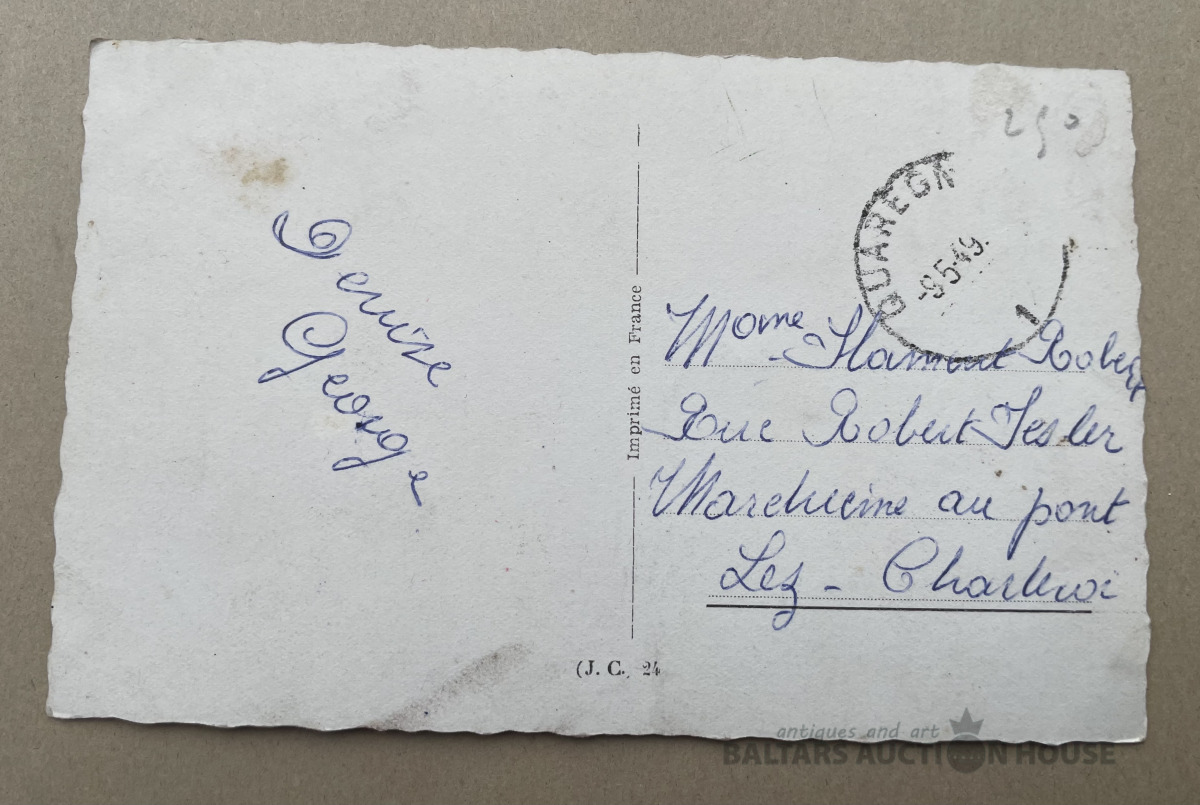 Denise
George
Imprimé en France
(J. C. 24
250
QUAREGN
-9.5-49.
1
Mome Flament Robert
Rue Robert Tesler
Marchiene au pont
Lez - Charleroi
antiques and art
BALTARS AUCTION HOUSE